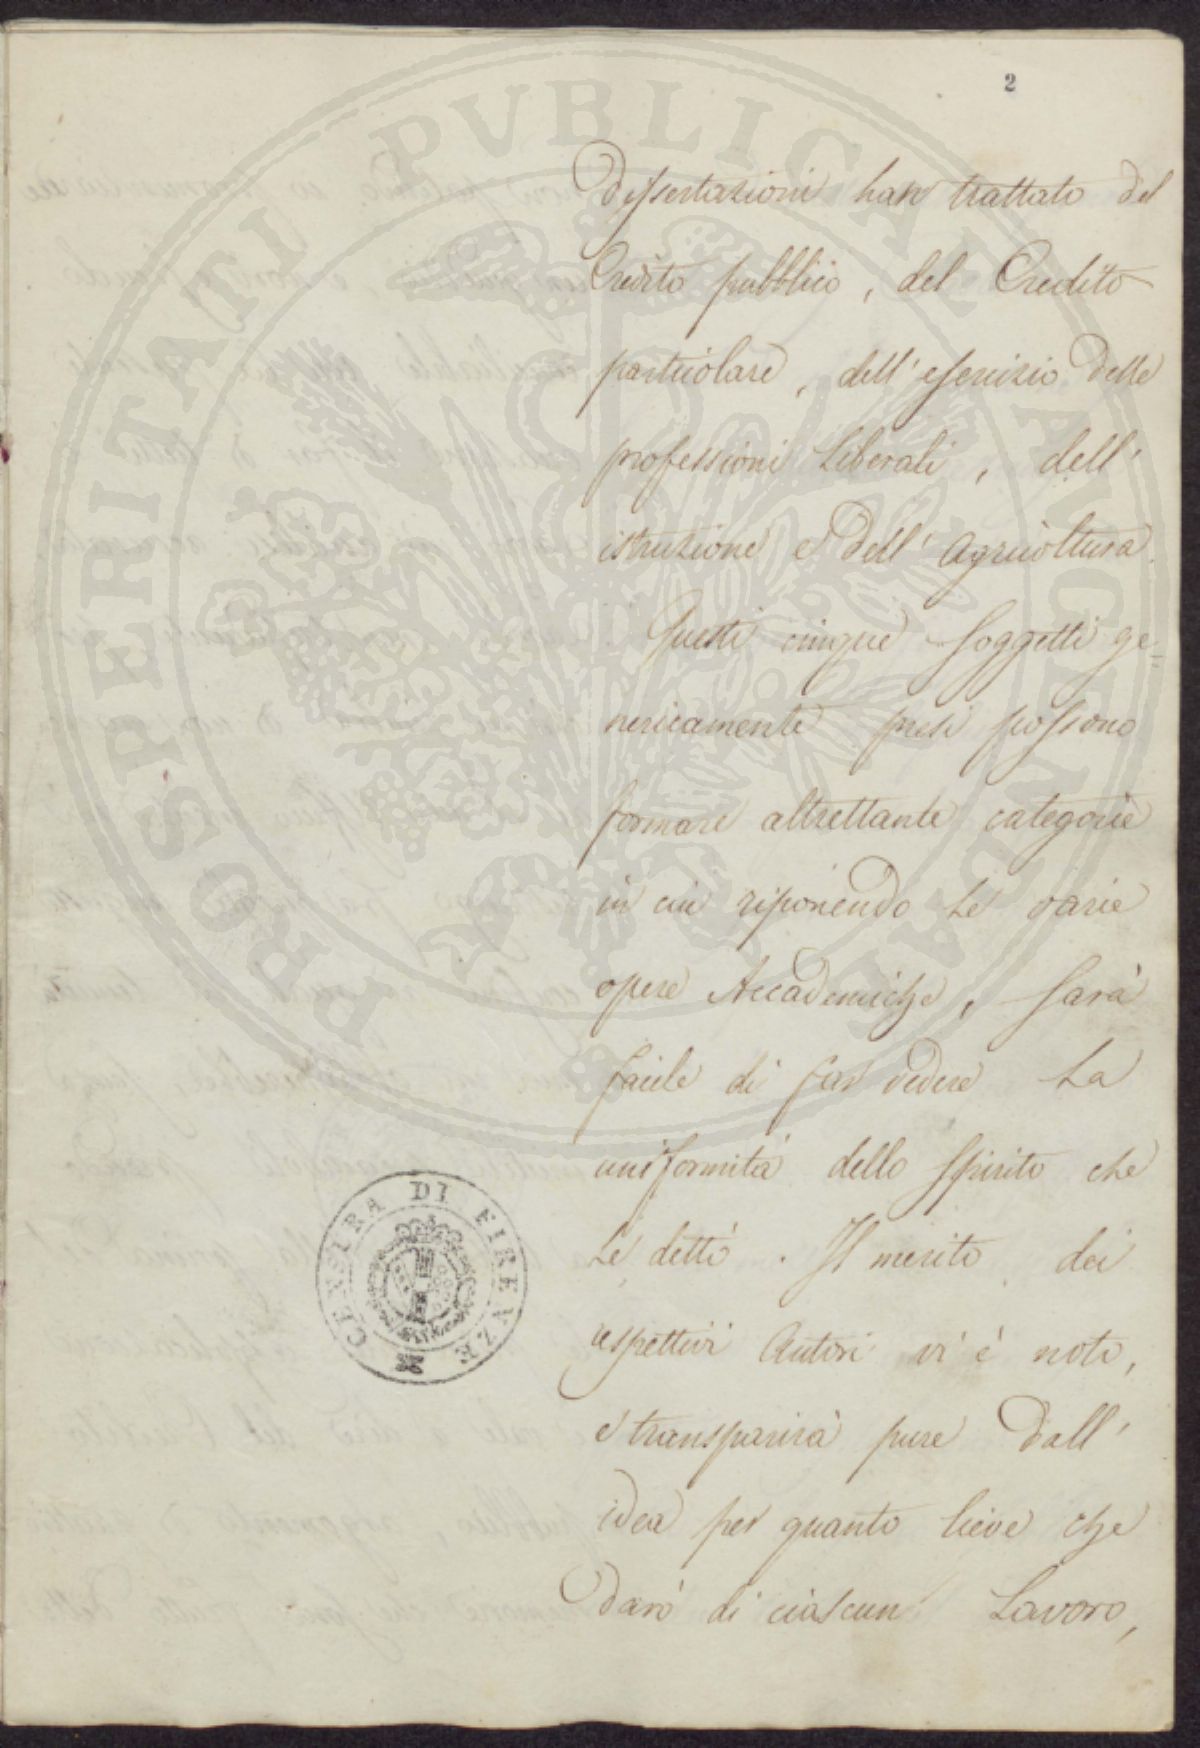 2
Dissertazioni han trattato del
Credito pubblico, del Credito
particolare, dell'esercizio delle
professioni Liberali, dell'
istruzione e dell'Agricoltura.
Questi cinque Soggetti ge=
nericamente presi possono
formare altrettante categorie
in cui riponendo Le varie
opere Accademiche, Sarà
facile di far vedere La
uniformità dello Spirito che
Le dettò. Il merito dei
respettivi Autori vi è noto,
e transparirà pure dall'
idea per quanto lieve che
darò di ciascun Lavoro,
CENSURA DI FIRENZE
PROSPERITATI PUBLICAE AUGENDAE